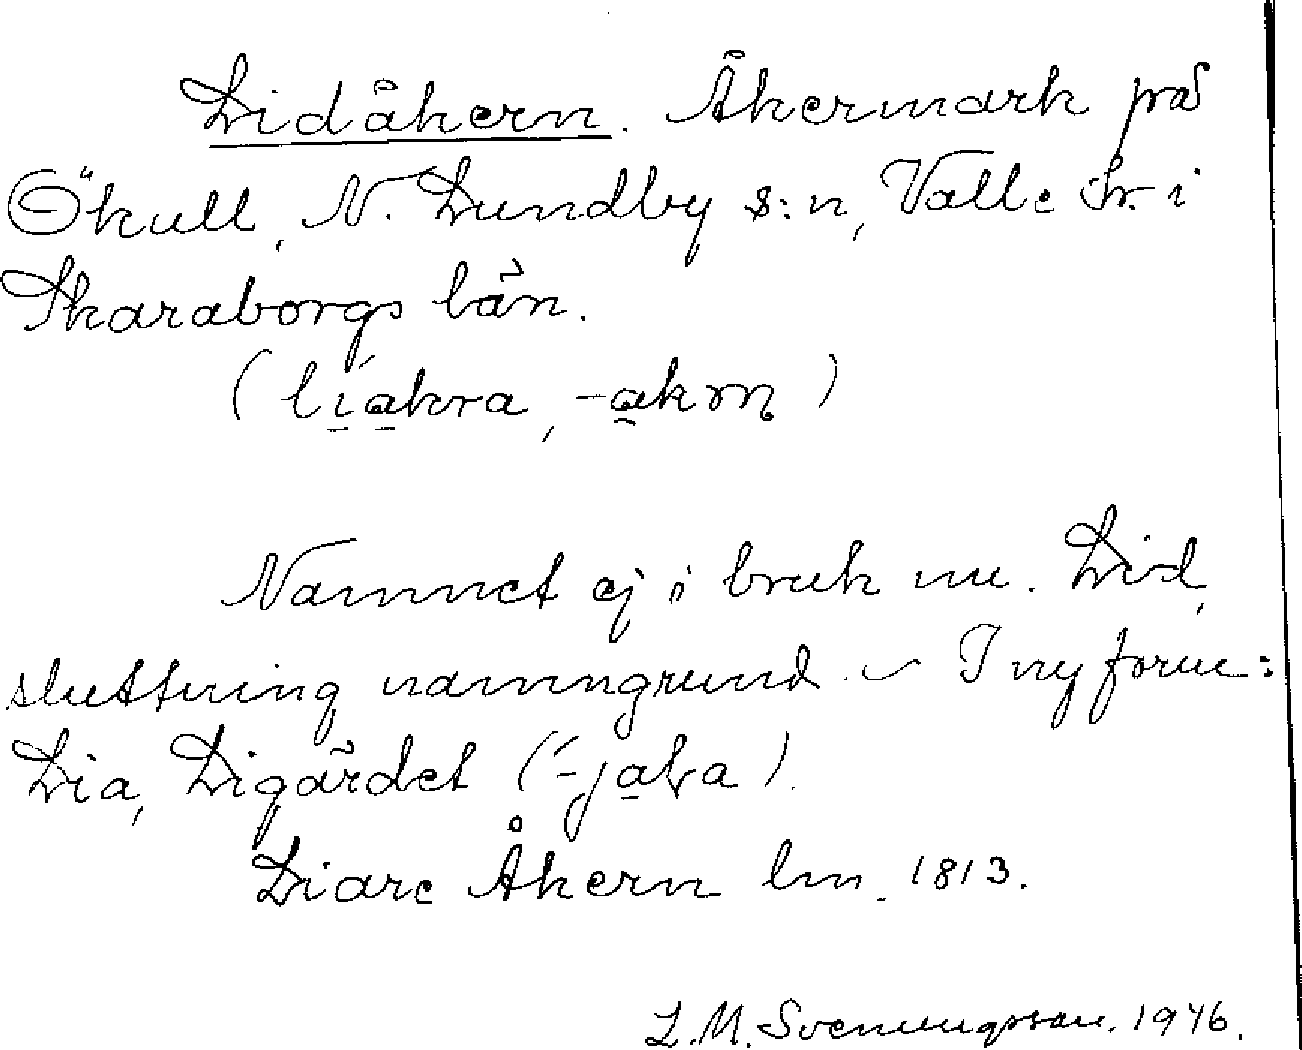 Lidåkern. Åkermark på
Ökull, N. Lundby s:n, Valle hr. i
Skaraborgs län.
(líakra, -akrn)
Namnet ej i bruk nu. Lid,
sluttning namngrund. – I ny form:
Lia, Ligärdet (-jaLa).
Liare Åkern lm. 1813.
L.M. Svenungsson. 1946.